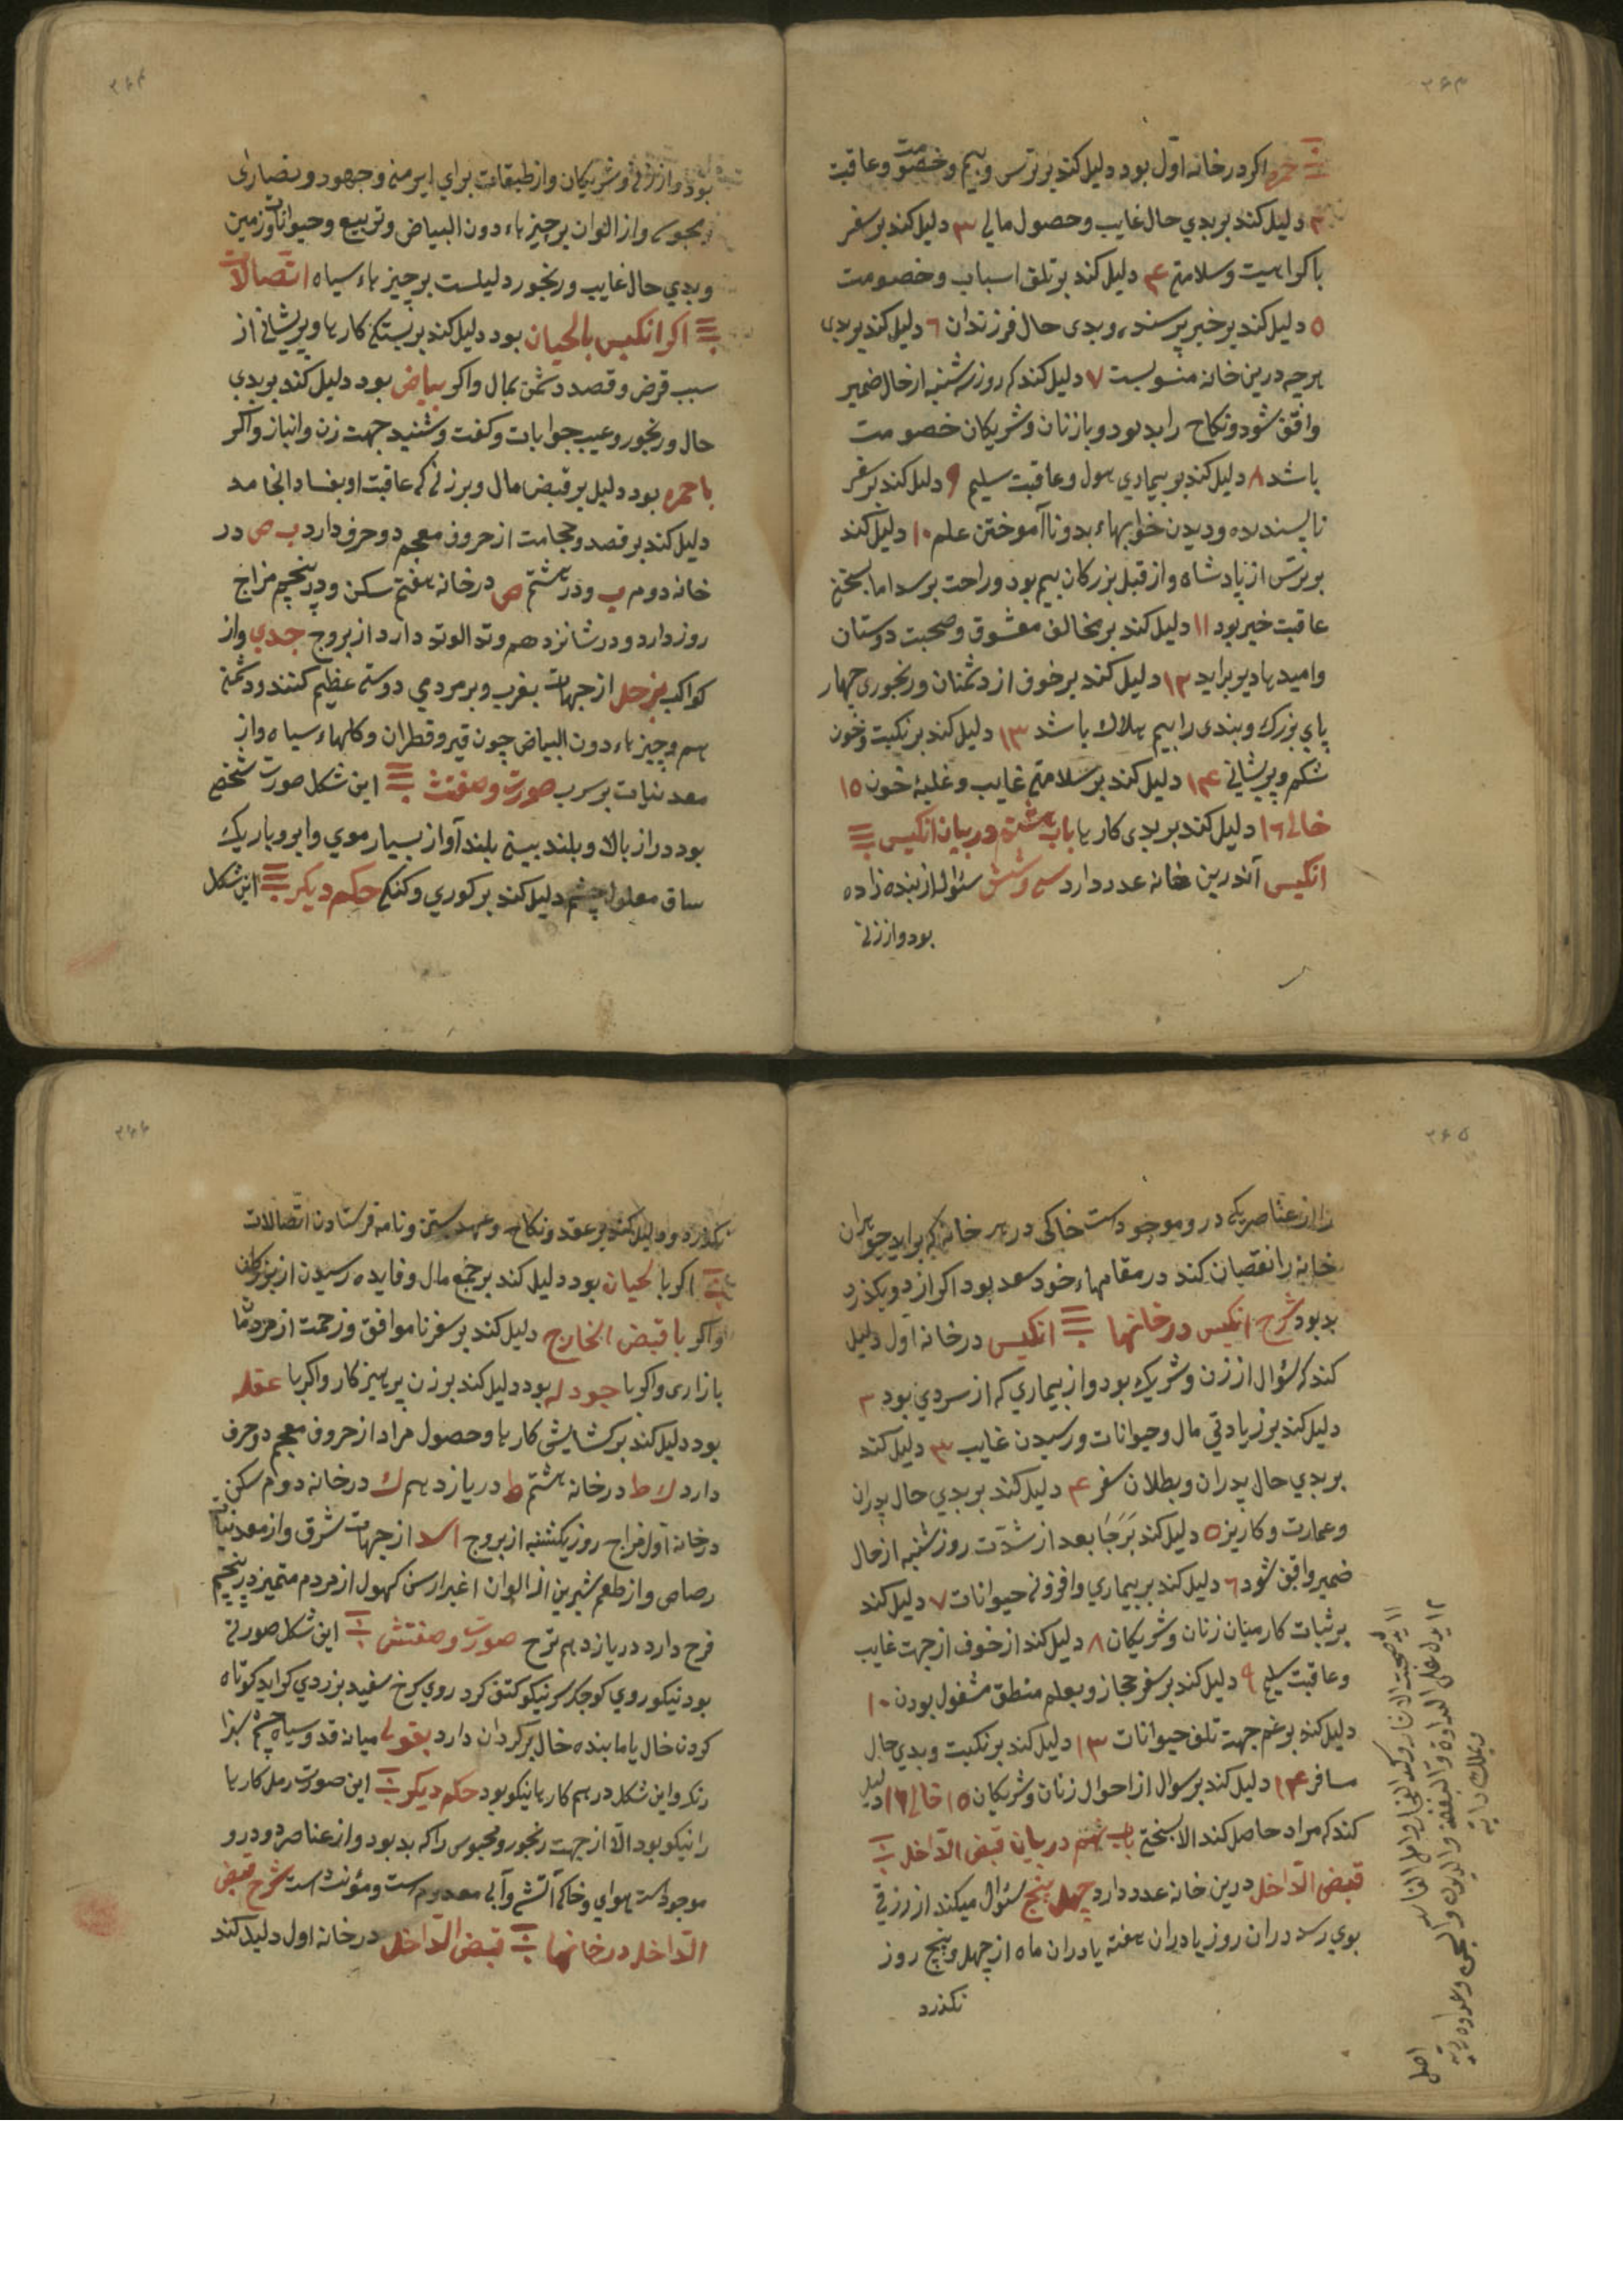 ۲۶۳
حمره اکر در خانه اول بود دلیل کند بر ترس و بیم و خصومت و عاقبت
۲ دلیل کند بر بدي حال غایب و حصول مالی ۳ دلیل کند بر سفر
با کراهیت و سلامتی ۴ دلیل کند بر تلف اسباب و خصومت
۵ دلیل کند بر خبر پرسنده و بدی حال فرزندان ٦ دلیل کند بر بدی
هرچه درین خانه منسوبست ۷ دلیل کند که روز سه شنبه از حال ضمیر
واقف شود و نکاح را بد بود و با زنان و شریکان خصومت
باشد ۸ دلیل کند بر بیماري هول و عاقبت سلیم ۹ دلیل کند بر سفر
ناپسندیده و دیدن خوابهاء بد و ناآموختن علم ۱۰ دلیل کند
بر ترس از پادشاه و از قبل بزرکان بیم بود و راحت برسد اما بسختی
عاقبت خیر بود ۱۱ دلیل کند بر مخالف معشوق و صحبت دوستان
وامیدها دیر براید ۱۲ دلیل کند بر خوف از دشمنان و رنجوری چهار
پاي بزرک و بندی را بیم هلاک باشد ۱۳ دلیل کند بر نکبت و خون
شکم و پریشانی ۱۴ دلیل کند بر سلامتی غایب و غلبهٔ خون ۱۵
خالی ۱٦ دلیل کند بر بدی کارها باب هشتم در بیان انکیس
انکیس آندرین خانه عدد دارد سی و شش سئوال از بنده زاده
بود و از زنی
۲۶۴
بود و از زنی و شریکان و از طبقات براي ایرمنی و جهود و نصاری
و مجوس و از الوان بر چیزهاء دون البیاض و تربیع و حیوانات و زمین
و بدي حال غایب و رنجور دلیلست بر چیزهاء سیاه اتصالات
اکر انکیس بالحیان بود دلیل کند بر بستکی کارها و پریشانی از
سبب قرض و قصد دشمن بمال و اکر بیاض بود دلیل کند بر بدي
حال و رنجور و عیب جوابات و کفت و شنید جهت زن و انباز و اکر
با حمره بود دلیل بر قبض مال و بر زنی که عاقبت او بفساد انجامد
دلیل کند بر فصد و حجامت از حروف معجم دو حرف دارد ب ص در
خانه دوم ب و در هشتم ص در خانه هفتم سکن و در پنجم مزاج
روز دارد و در شانزدهم وتد الوتد دارد از بروج جدي و از
کواکب بزحل از جهات بغرب و بر مردمی دوستی عظیم کنند و دشمنی
هم و چیزهاء دون البیاض چون قیر و قطران و کلهاء سیاه و از
معدنیات بر سرب صورت و صفتش این شکل صورت شخصی
بود دراز بالا و بلند بینی بلند آواز بسیار موي و ابرو باریک
ساق معلول چشم دلیل کند بر کوري و کنکی حکم دیکر این شکل
۲۶۵
را از عناصر یکی در و موجودست خاکی در هر خانه که براید
خانه را نقصان کند در مقامهاء خود سعد بود اکر از دو بکذرد
بد بود شرح انکیس در خانها انکیس در خانه اول دلیل
کند که سئوال از زن و شریک بود و از بیماري که از سردي بود ۲
دلیل کند بر زیادتی مال و حیوانات و رسیدن غایب ۳ دلیل کند
بر بدي حال پدران و بطلان سفر ۴ دلیل کند بر بدي حال پدران
و عمارت و کاریز ۵ دلیل کند بر جا بعد از شدت روز شنبه از حال
ضمیر واقف شود ٦ دلیل کند بر بیماري و افزونی حیوانات ۷ دلیل کند
بر ثبات کار میان زنان و شریکان ۸ دلیل کند از خوف از جهت غایب
و عاقبت سلیم ۹ دلیل کند بر سفر حجاز و بعلم منطق مشغول بودن ۱۰
دلیل کند بر غم جهت تلف حیوانات ۱۳ دلیل کند بر نکبت و بدي حال
مسافر ۱۴ دلیل کند بر سوال از احوال زنان و شریکان ۱۵ خالی ۱٦ دلیل
کند که مراد حاصل کند الا بسختی باب نهم در بیان قبض الداخل
قبض الداخل درین خانه عدد دارد چهل پنج سئوال میکند از رزقی
بوي رسد در ان روز یا در ان هفته یا در ان ماه از چهل و پنج روز
نکذرد
۲۶۶
نکذرد و دلیل کند بر عقد و نکاح و عهد بستن و نامه فرستادن اتصالات
اکر با لحیان بود دلیل کند بر جمع مال و فایده رسیدن از بزرکان
و اکر با قبض الخارج دلیل کند بر سفر ناموافق و زحمت از مردم
بازاری و اکر با جودله بود دلیل کند بر زن پرهیزکار و اکر با عقله
بود دلیل کند بر کشایش کارها و حصول مراد از حروف معجم دو حرف
دارد ک ط در خانه هشتم ط در یازدهم ک در خانه دوم سکن
در خانه اول مزاج روز یکشنبه از بروج اسد از جهات شرق و از معدنیات
رصاص و از طعم شیرین از الوان اغبر از سن کهول از مردم متمیز در پنجم
فرح دارد در یازدهم ترح صورت و صفتش این شکل صورتی
بود نیکو روي کوچک سر نیکو کتف کرد روي سرخ سفید بزردي کراید کوتاه
کردن خال یا ماننده خال بر کردان دارد بقولی میانه قد و سیاه چشم
رنک و این شکل در هم کارها نیکو بود حکم دیکر این صورت رمل کارها
را نیکو بود الا از جهت رنجور و محبوس را که بد بود و از عناصر دو درو
موجودست هواي و خاکی آتشی و آبی معدومست و مؤنث است شرح قبض
الداخل در خانها قبض الداخل در خانه اول دلیل کند